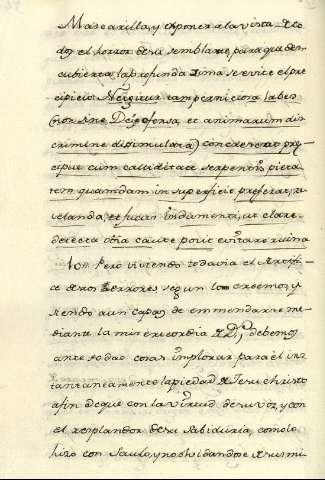 Mascarilla, y exponer a la vista de to
dos el horror de su semblante para que des
cubierta la profunda sima se evite el pre
cipicio. Ne igitur tam perniciosa labes
(non sine Dei ofensa, et animarum dis
crimine disimulata) concrescat pre
cipue cum calliditate serpentis pieta
tem quamdam in superficie preferat, re
velanda, et fucati indumenti, ut clare
detecta via caute posit evitare ruina
Pero viviendo todavia el Artifi
ce de los Herrores segun lo creemos, y
siendo aun capaz de enmendarse me
diante la misericordia de D.s debemos
ante todas cosas implorar para el ins
tantaneamente la piedad de Jesu christo
a fin de que con la virtud de su voz, y con
el resplandor de su Sabiduria, como lo
hizo con Saulo, y no olvidandose de sus mi